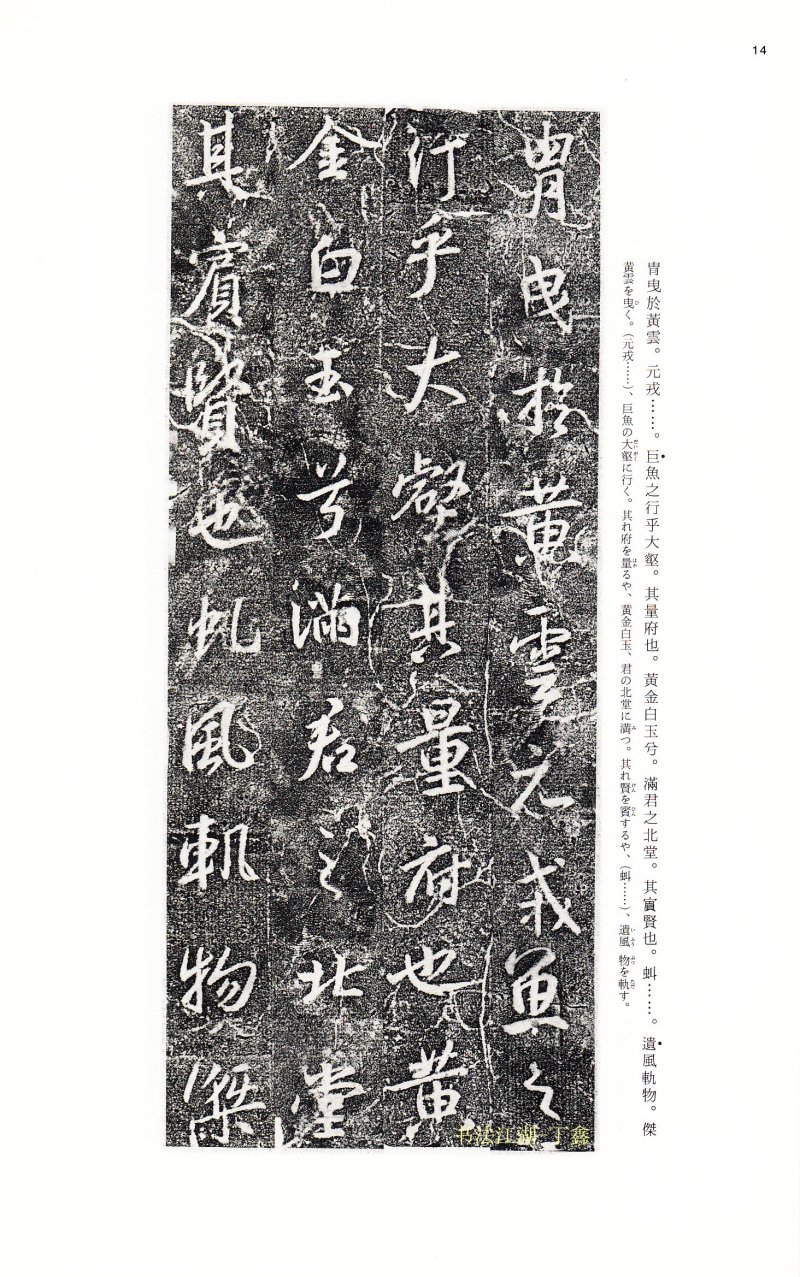 14
冑曳於黃雲。元戎……。巨魚之行乎大壑。其量府也。黃金白玉兮。滿君之北堂。其賓賢也。蚪……。遺風軌物。傑
黃雲を曳く。（元戎……）、巨魚の大壑に行く。其れ府を量るや、黃金白玉、君の北堂に満つ。其れ賢を賓するや、（蚪……）、遺風 物を軌す。
冑曳於黃雲元戎魚之
行乎大壑其量府也黃
金白玉兮滿君之北堂
其賓賢也虬風軌物傑
书法江湖 丁鑫